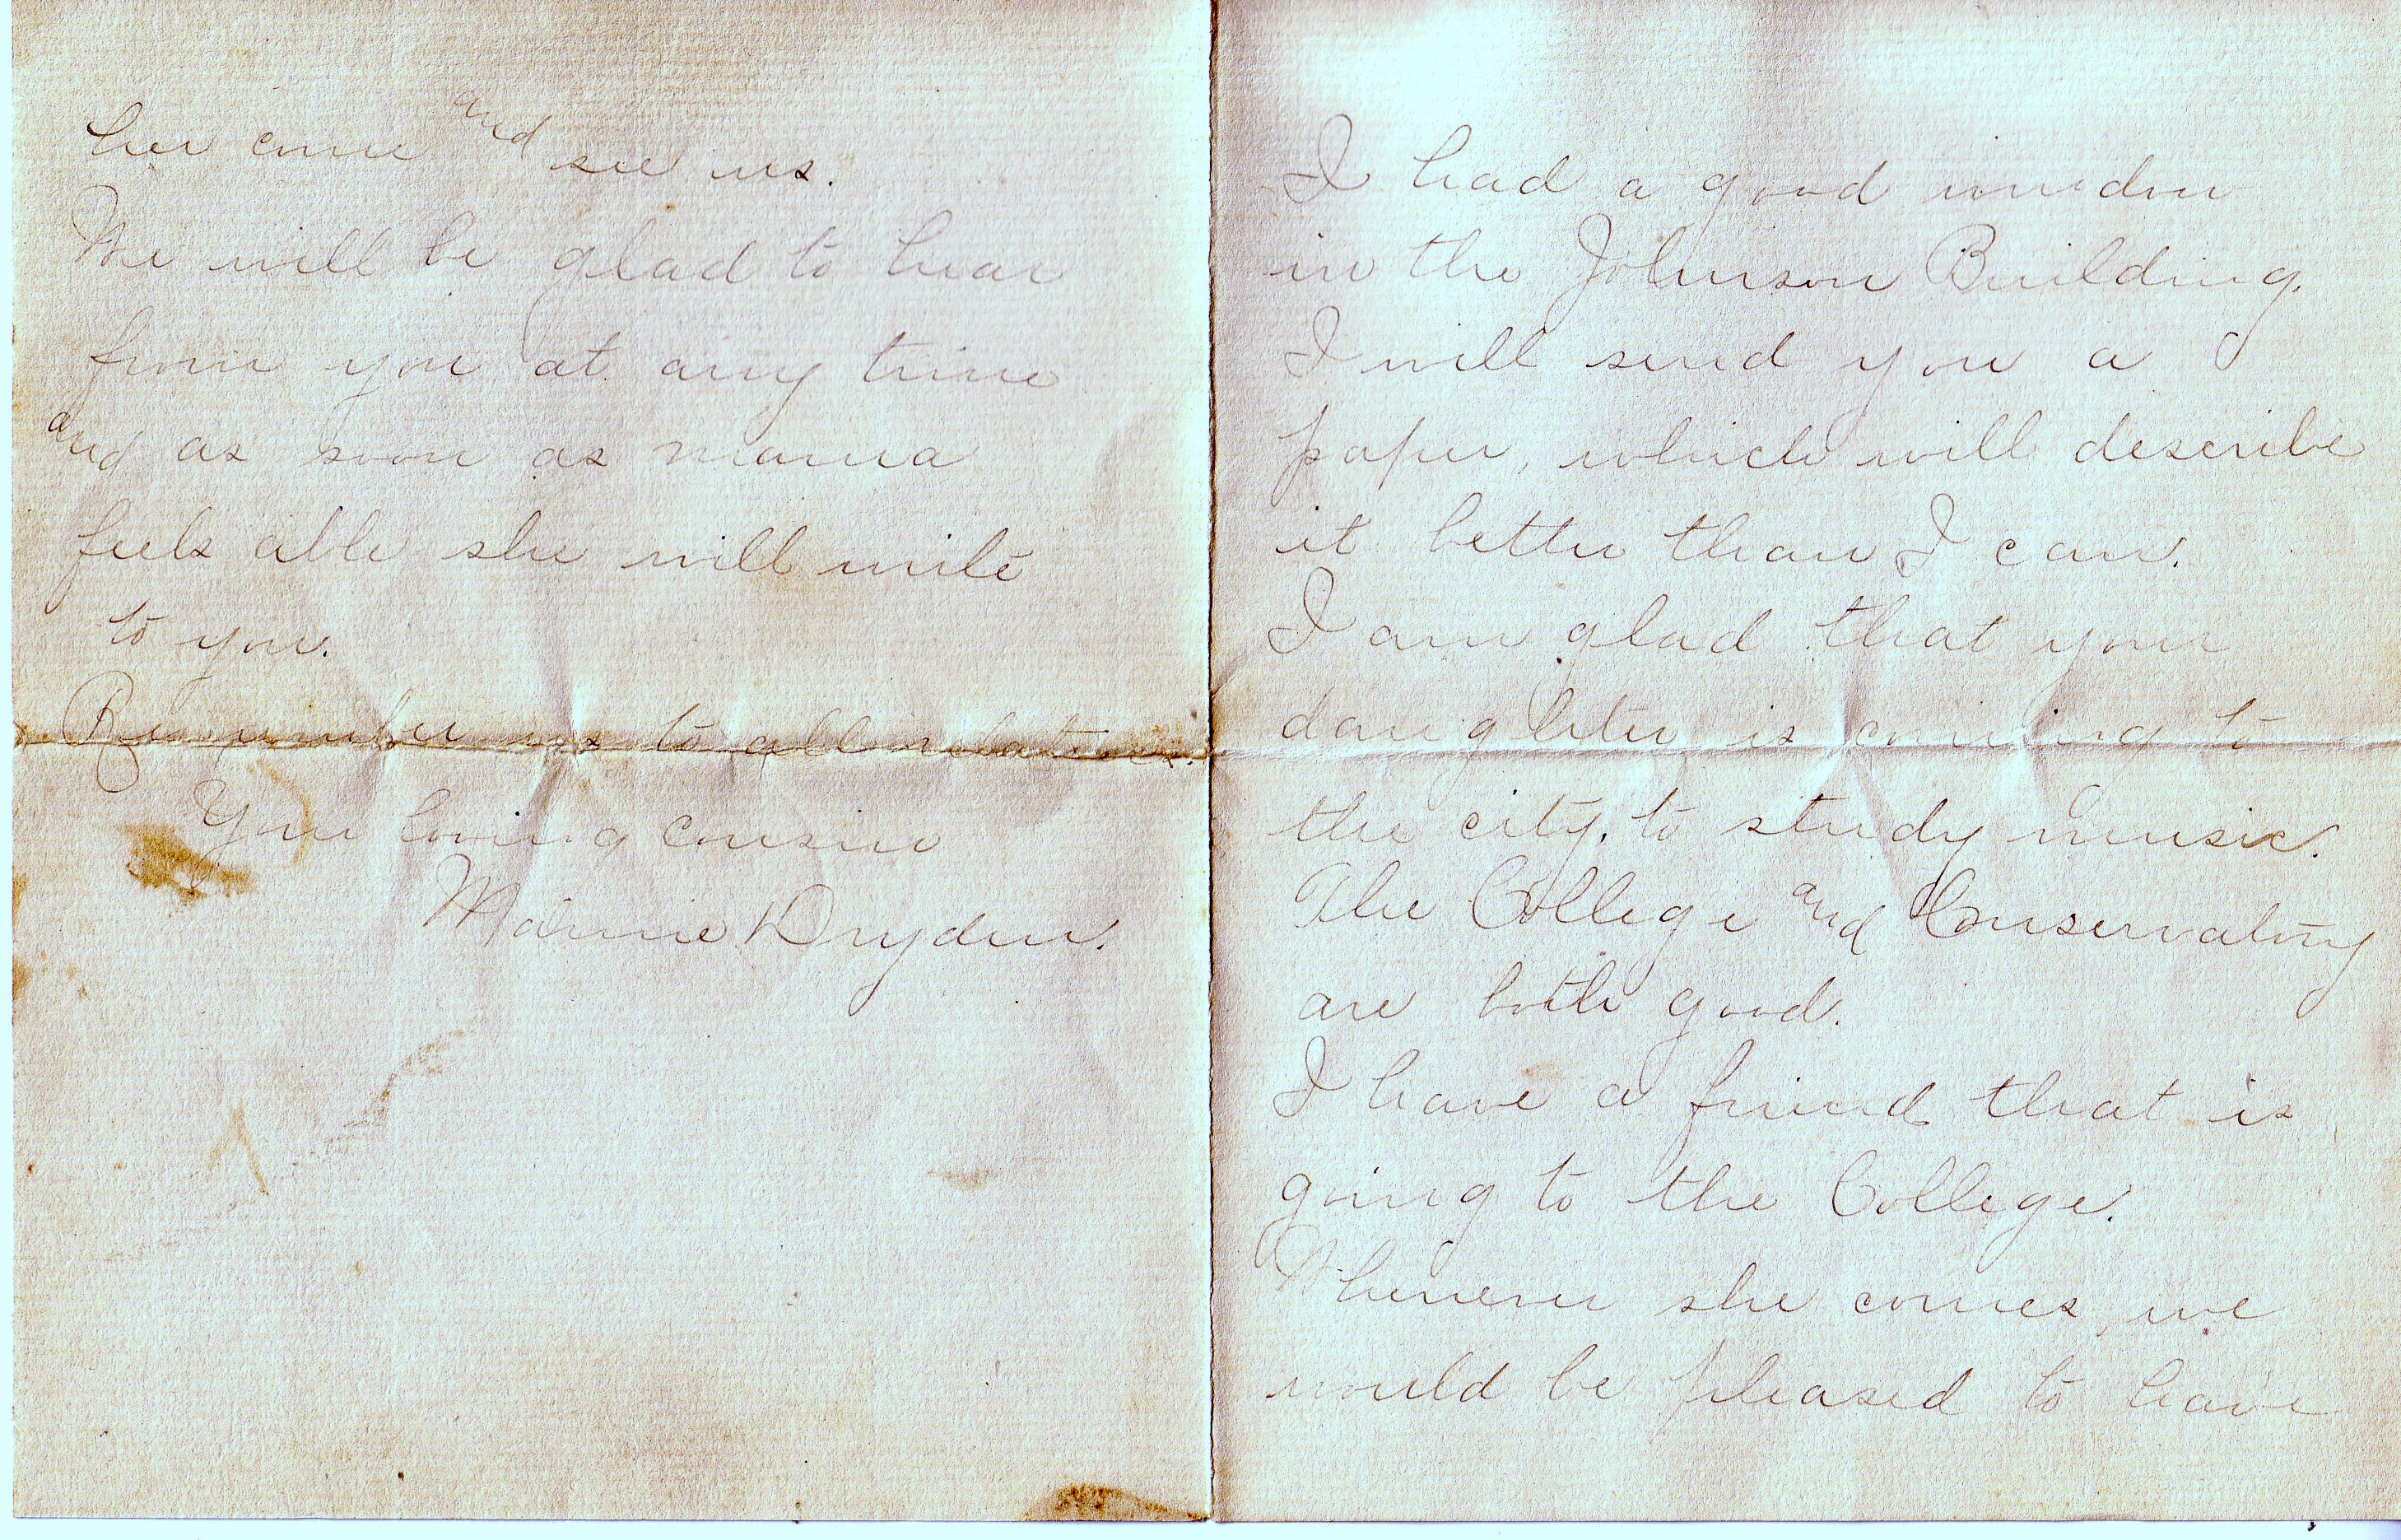 I had a good window
in the Johnson Building.
I will send you a
paper, which will describe
it better than I can.
I am glad that your
daughter is coming to
the city, to study music.
The College and Conservatory
are both good.
I have a friend that is
going to the College.
Whenever she comes, we
would be pleased to have
her come and see us.
We will be glad to hear
from you at any time
and as soon as mama
feels able she will write
to you.
Remember us to all relations.
Your loving cousin
Mamie Dryden.